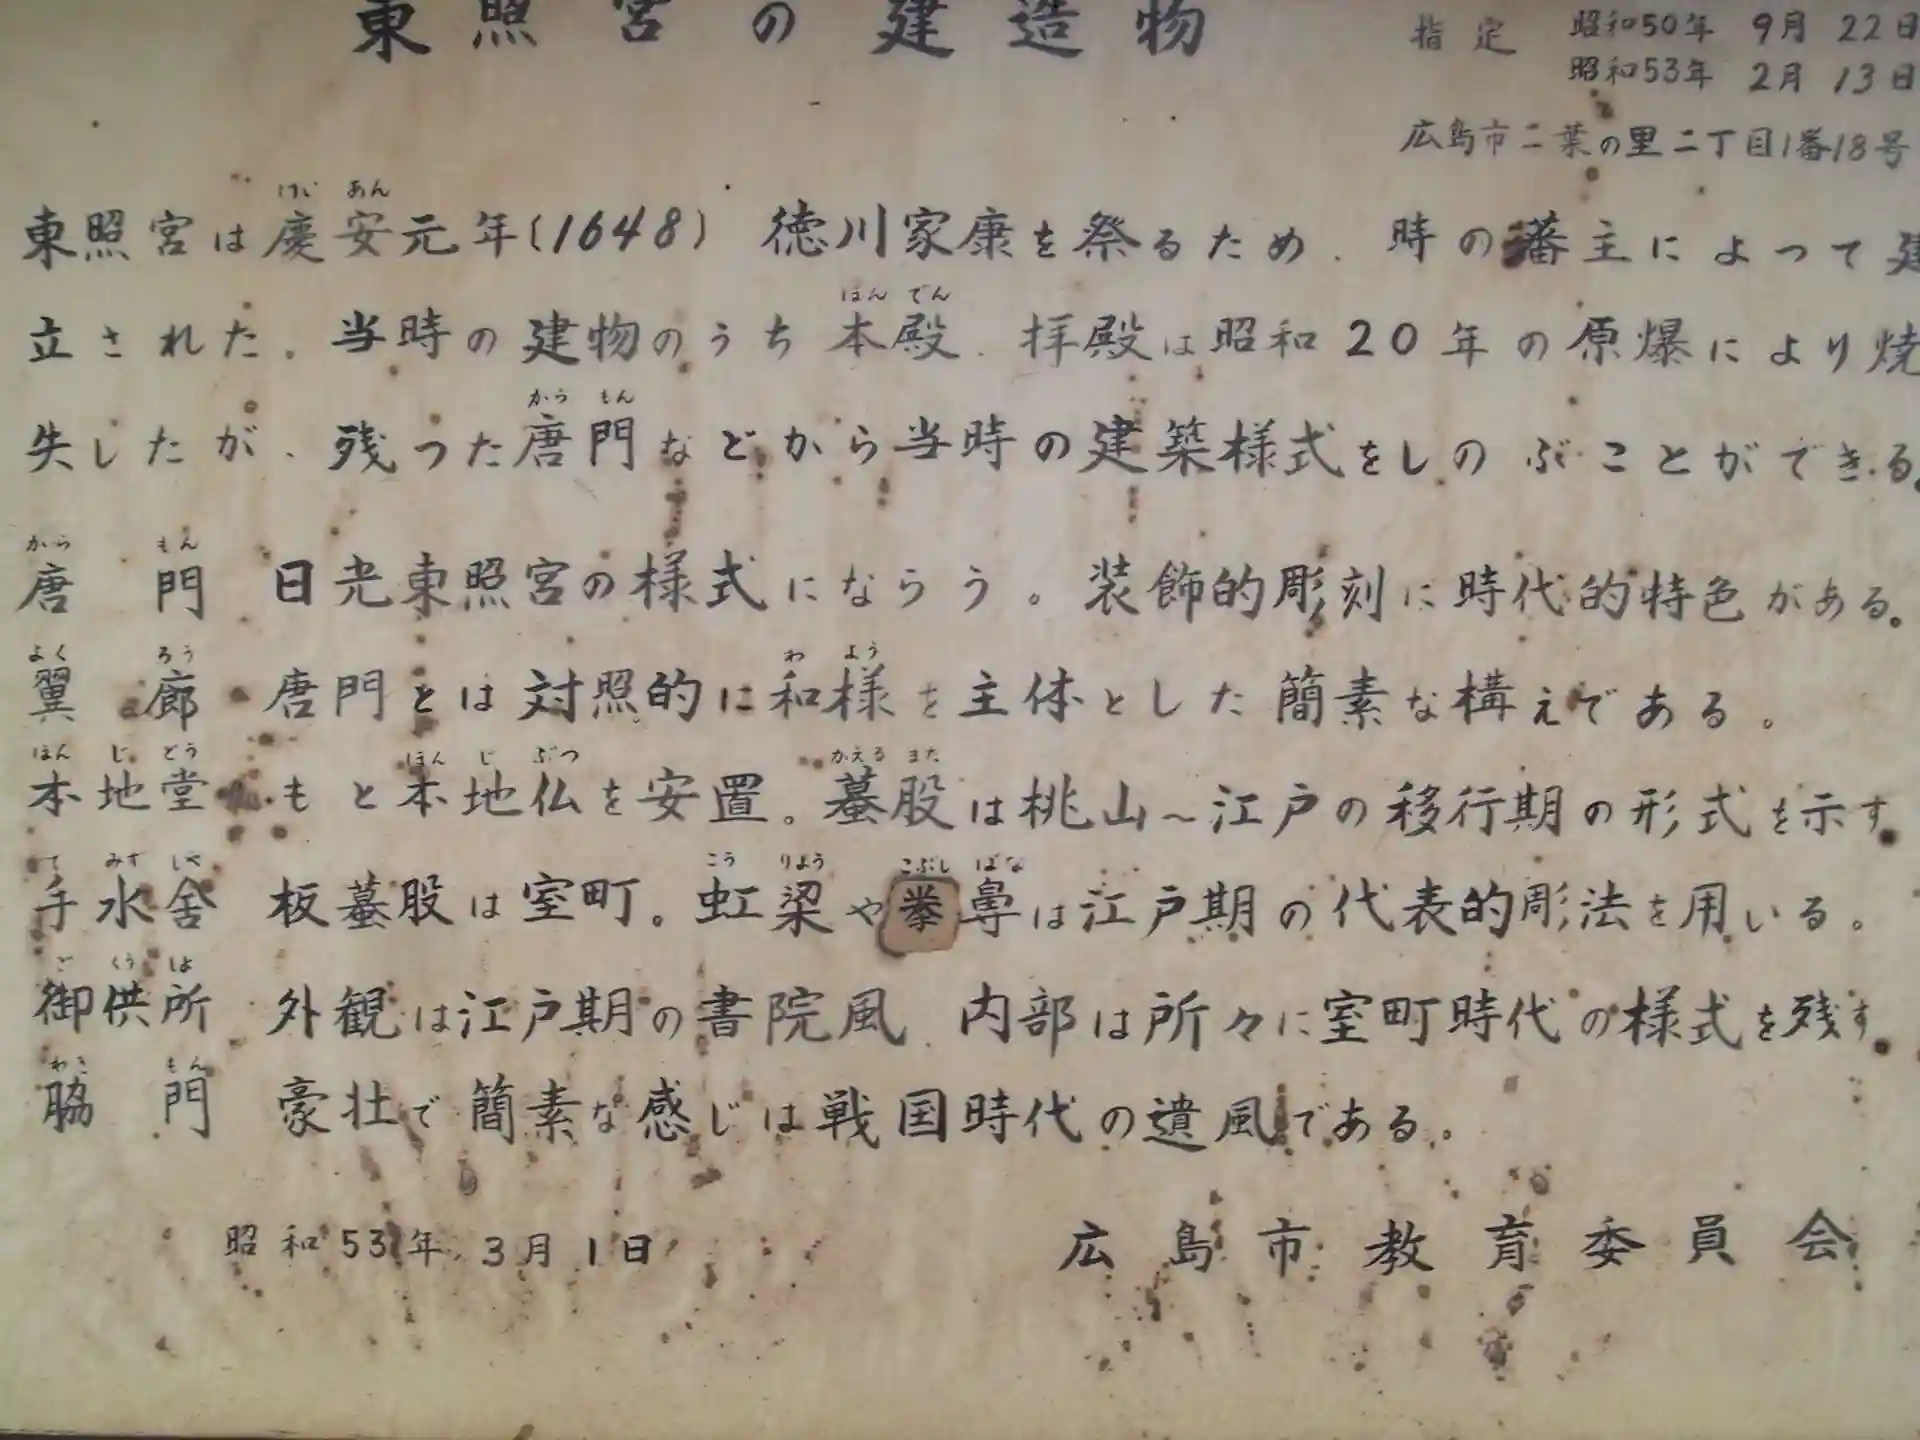 東照宮の建造物
指定 昭和50年 9月 22日
昭和53年 2月 13日
広島市二葉の里二丁目1番18号
けい あん
東照宮は慶安元年(1648) 徳川家康を祭るため、時の藩主によって建
ほん でん
立された。当時の建物のうち本殿、拝殿は昭和20年の原爆により焼
から もん
失したが、残った唐門などから当時の建築様式をしのぶことができる。
から もん
唐門 日光東照宮の様式にならう。装飾的彫刻に時代的特色がある。
よく ろう わ よう
翼廊 唐門とは対照的に和様を主体とした簡素な構えである。
ほん じ どう ほん じ ぶつ かえる また
本地堂 もと本地仏を安置。蟇股は桃山~江戸の移行期の形式を示す。
て みず しや こう りよう こぶし ばな
手水舎 板蟇股は室町。虹梁や拳鼻は江戸期の代表的彫法を用いる。
ご くう しよ
御供所 外観は江戸期の書院風、内部は所々に室町時代の様式を残す。
わき もん
脇門 豪壮で簡素な感じは戦国時代の遺風である。
昭和53年 3月 1日 広島市教育委員会